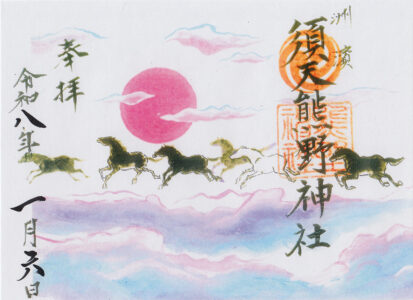 洲濱
須天熊野神社
奉拝
令和八年
一月六日